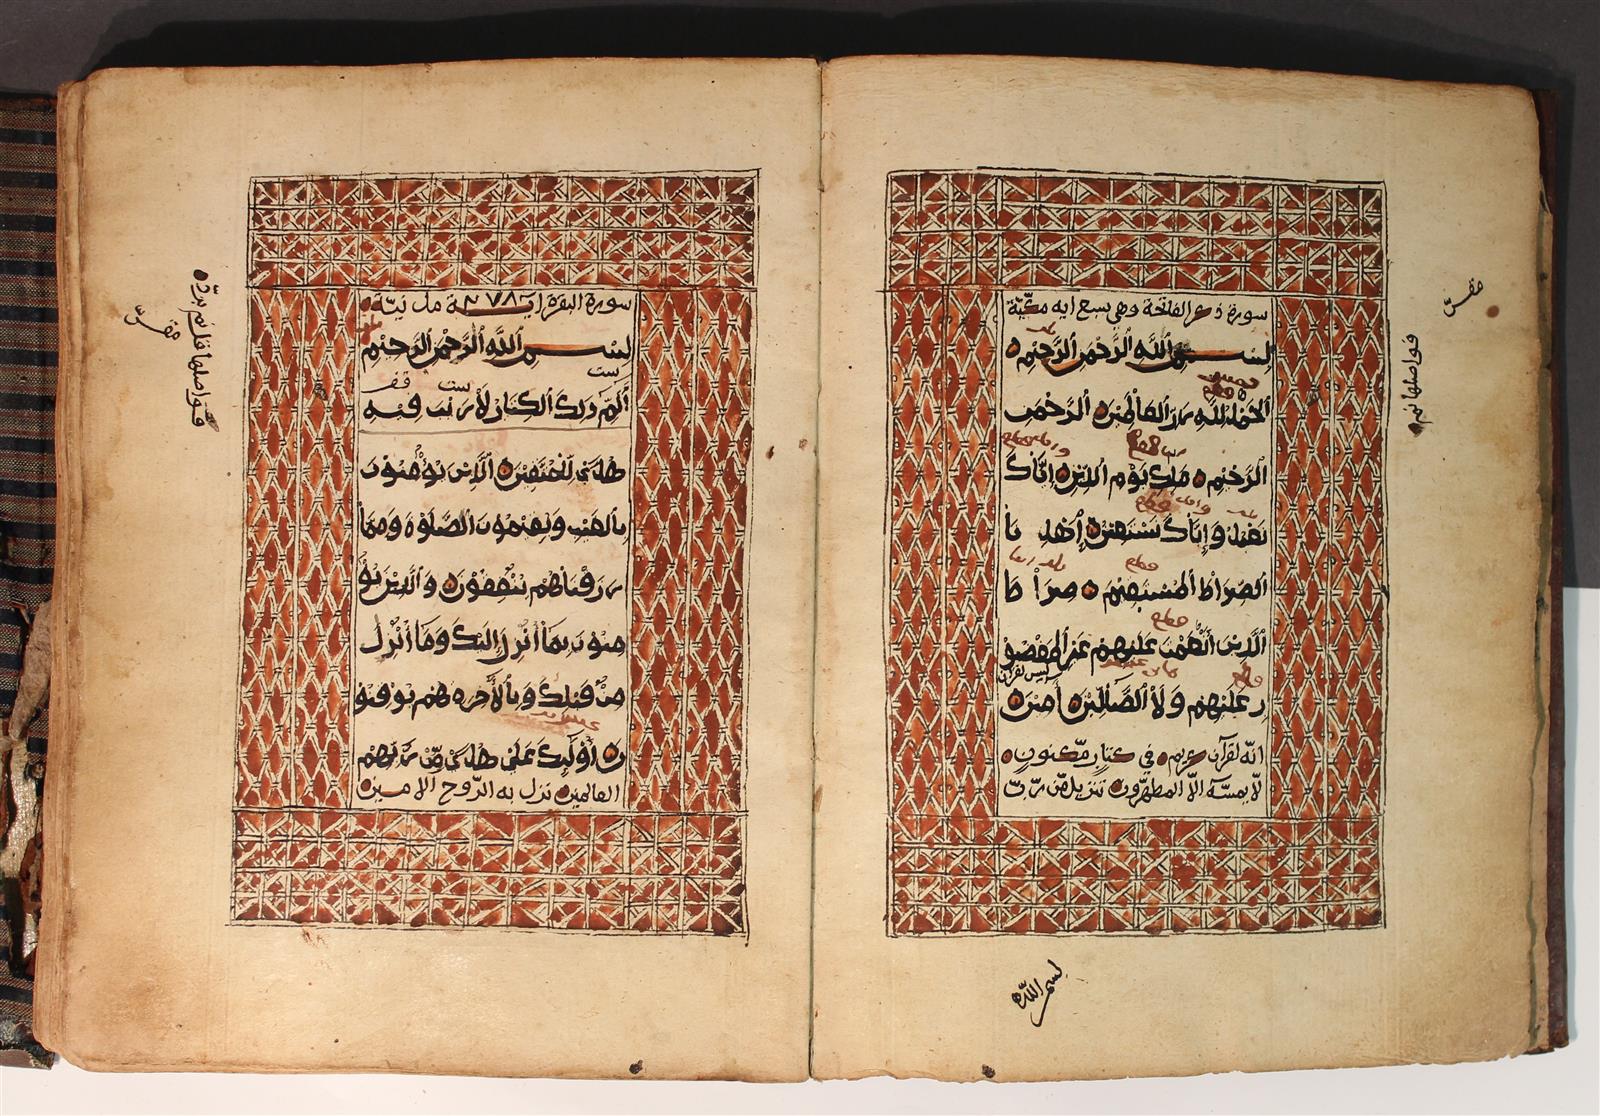 سورة ذكر الفاتحة وهى سبع ايه مكّيّة
بسم ٱللّه ٱلرّحمن ٱلرّحيم
ٱلحمد للّه رب ٱلعالمين ٱلرّحمن
ٱلرّحيم ملك يوم ٱلدّين إيّاك
نعبد وإيّاك نستعين إهد نا
ٱلصّراط ٱلمستقيم صراط
ٱلّذين أنعمت عليهم غير ٱلمغضو
ب عليهم ولا ٱلضّآلّين أمين
انّه لقرآن كريم في كتاب مّكنون
لا يمسّه الّا المطهّرون تنزيل مّن رّبّ
بسم اللّه
فواصلها نم
سورة البقرة ٢٨٧ مدنيّة
بسم ٱللّه ٱلرّحمن ٱلرّحيم
ألمّ ذلك ٱلكتاب لا ريب فيه
هدى للمتقين ٱلّذين يؤمنون
بٱلغيب ويقيمون ٱلصّلوة وممّا
رزقناهم ينفقون وٱلّذين يؤ
منون بمآ أنزل إليك ومآ أنزل
من قبلك وبٱلأخرة هم يوقنو
ن أولئك على هدى مّن رّبّهم
العالمين نزل به الرّوح الامين